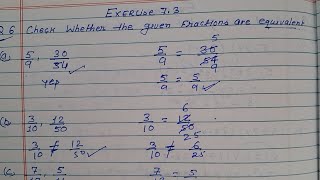 EXERCISE 7.3
Q6 Check whether the given fractions are equivalent
(a) 5/9, 30/54 5/9 = 30/54 5 9
yes 5/9 = 5/9
(b) 3/10, 12/50 3/10 = 12/50 6 25
3/10 ≠ 12/50 3/10 ≠ 6/25
(c) 7 5 7 = 5